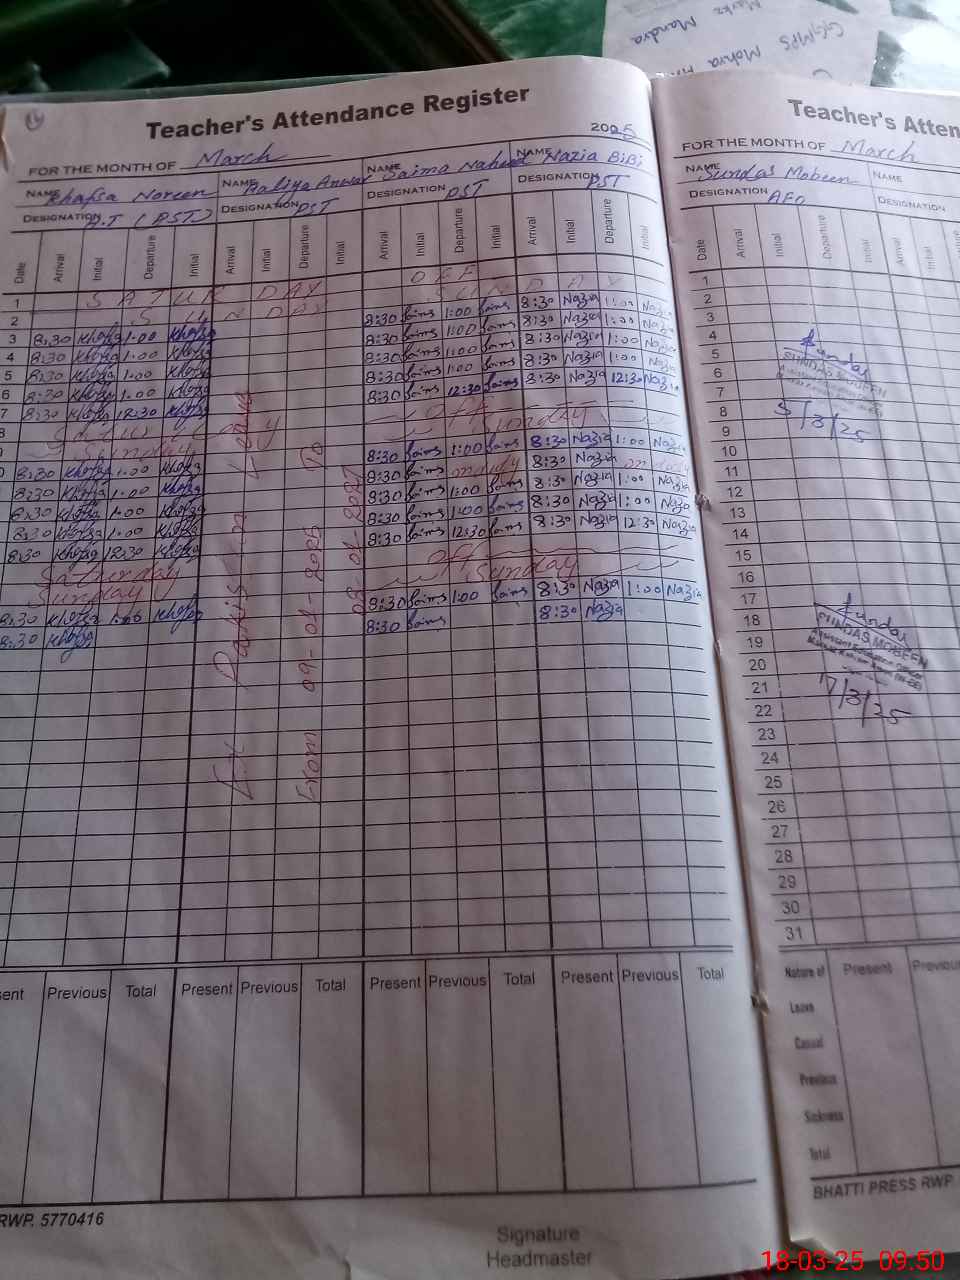 Markz Mandra
GGMPS Mohra
14
Teacher's Attendance Register
2025
FOR THE MONTH OF March
NAME Khafsa Noreen NAME Aaliya Anwar NAME Saima Naheed NAME Nazia BiBi
DESIGNATION H.T (PST) DESIGNATION PST DESIGNATION PST DESIGNATION PST
Date Arrival Initial Departure Initial Arrival Initial Departure Initial Arrival Initial Departure Initial Arrival Initial Departure Initial
1 SATURDAY OFF
2 SUNDAY SUNDAY
3 8:30 Khafsa 1:00 Khafsa 8:30 Saima 1:00 Saima 8:30 Nazia 1:00 Nazia
4 8:30 Khafsa 1:00 Khafsa 8:30 Saima 1:00 Saima 8:30 Nazia 1:00 Nazia
5 8:30 Khafsa 1:00 Khafsa 8:30 Saima 1:00 Saima 8:30 Nazia 1:00 Nazia
6 8:30 Khafsa 1:00 Khafsa 8:30 Saima 1:00 Saima 8:30 Nazia 1:00 Nazia
7 8:30 Khafsa 12:30 Khafsa 8:30 Saima 12:30 Saima 8:30 Nazia 12:30 Nazia
8 Saturday off
Sunday Sunday
8:30 Khafsa 1:00 Khafsa 8:30 Saima 1:00 Saima 8:30 Nazia 1:00 Nazia
8:30 Khafsa 1:00 Khafsa 8:30 Saima on duty Saima 8:30 Nazia on duty Nazia
8:30 Khafsa 1:00 Khafsa 8:30 Saima 1:00 Saima 8:30 Nazia 1:00 Nazia
8:30 Khafsa 1:00 Khafsa 8:30 Saima 1:00 Saima 8:30 Nazia 1:00 Nazia
8:30 Khafsa 12:30 Khafsa 8:30 Saima 12:30 Saima 8:30 Nazia 12:30 Nazia
Saturday off
Sunday Sunday
8:30 Khafsa 1:00 Khafsa 8:30 Saima 1:00 Saima 8:30 Nazia 1:00 Nazia
8:30 Khafsa 8:30 Saima 8:30 Nazia
Ex Pakistan Leave
From 09-01-2025 To
Present Previous Total Present Previous Total Present Previous Total
Previous Total
RWP. 5770416
Signature
Headmaster
Teacher's Atten
FOR THE MONTH OF March
NAME Sundas Mobeen NAME
DESIGNATION AEO DESIGNATION
Date Arrival Initial Departure Initial Arrival Initial
1
2
3
4
5 Sundas
6 SUNDAS MOBEEN
7
8 5/3/25
9
10
11
12
13
14
15
16
17 Sundas
18 SUNDAS MOBEEN
19 Assistant Education Officer
20
21 17/3/25
22
23
24
25
26
27
28
29
30
31
Nature of Present Previous
Leave
Casual
Previous
Sickness
Total
BHATTI PRESS RWP
18-03-25 09.50